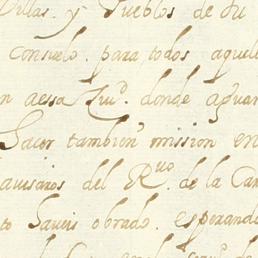 Villas. y Pueblos de su
consuelo. para todos aquell
n aessa Ziu.ᵈ donde aguar
Sacer tambien mission en
auisaros del R.ᵐᵒ de la Can
to Saueis obrado. esperando